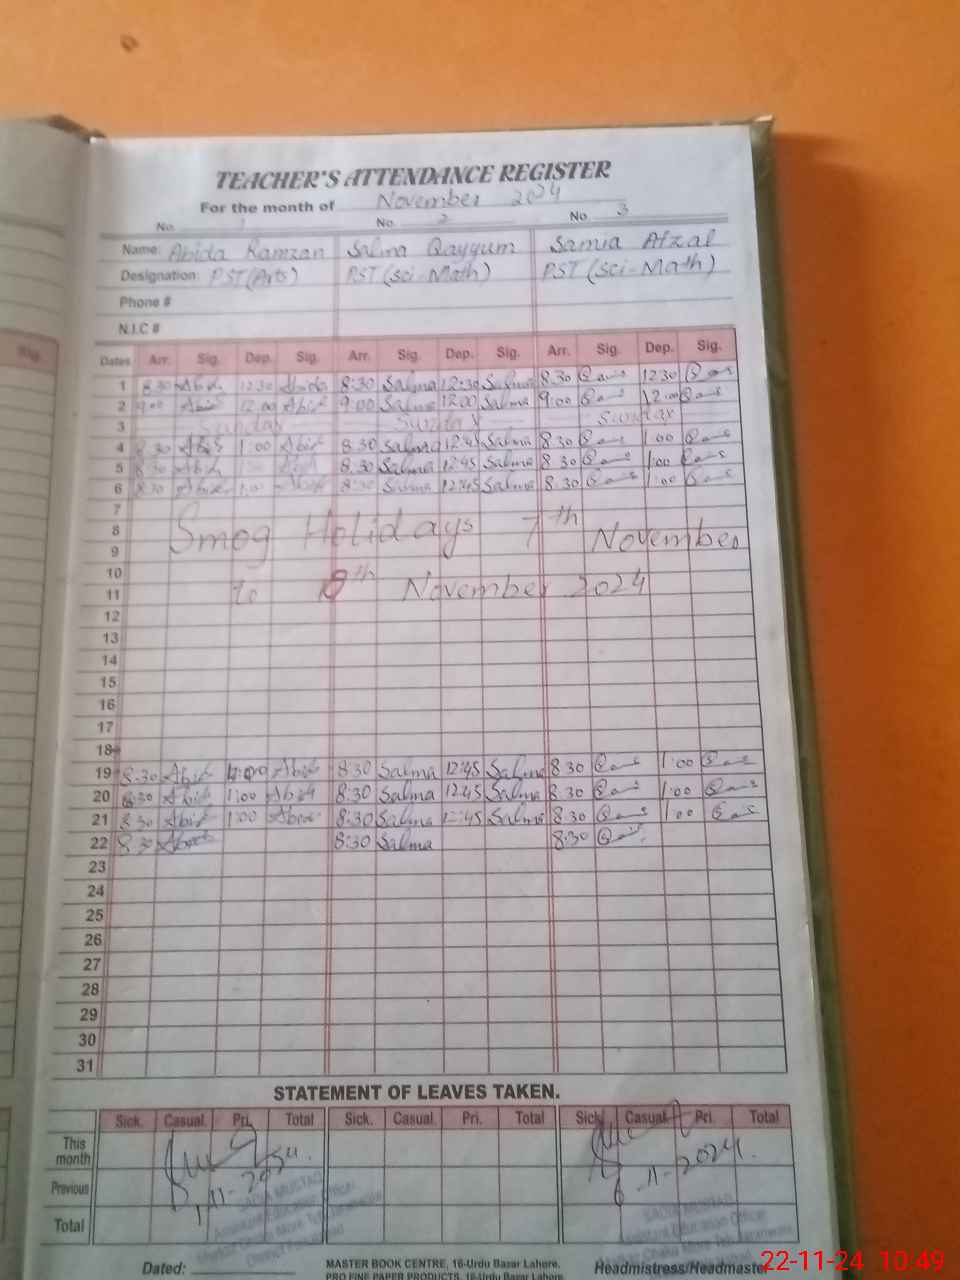 Sig.
TEACHER'S ATTENDANCE REGISTER
For the month of November 2024
No. 1 No. 2 No. 3
Name: Abida Ramzan Salma Qayyum Samia Afzal
Designation: PST(Arts) PST(sci-Math) PST(sci-Math)
Phone #
N.I.C #
Dates Arr. Sig. Dep. Sig. Arr. Sig. Dep. Sig. Arr. Sig. Dep. Sig.
1 8:30 Abida 12:30 Abida 8:30 Salma 12:30 Salma 8:30 12:30
2 9:00 Abida 12:00 Abida 9:00 Salma 12:00 Salma 9:00 12:00
3 Sunday Sunday Sunday
4 8:30 Abida 1:00 Abida 8:30 Salma 12:45 Salma 8:30 1:00
5 8:30 Abida 8:30 Salma 12:45 Salma 8:30 1:00
6 8:30 Abida 1:00 Abida 8:30 Salma 12:45 Salma 8:30 1:00
7
8 Smog Holidays 7th November
9
10
11 to November 2024
12
13
14
15
16
17
18
19 8:30 Abida Abida 8:30 Salma 12:45 Salma 8:30 1:00
20 8:30 Abida 1:00 Abida 8:30 Salma 12:45 Salma 8:30 1:00
21 8:30 Abida 1:00 Abida 8:30 Salma 12:45 Salma 8:30 1:00
22 8:30 Abida 8:30 Salma 8:30
23
24
25
26
27
28
29
30
31
STATEMENT OF LEAVES TAKEN.
Sick. Casual. Pri. Total Sick. Casual. Pri. Total Sick. Casual. Pri. Total
This month
Previous
Total
SADIA MUSHTAQ
Assistant Education Officer
Dated:
MASTER BOOK CENTRE, 16-Urdu Bazar Lahore.
PRO FINE PAPER PRODUCTS, 16-Urdu Bazar Lahore.
Headmistress/Headmaster
22-11-24 10:49